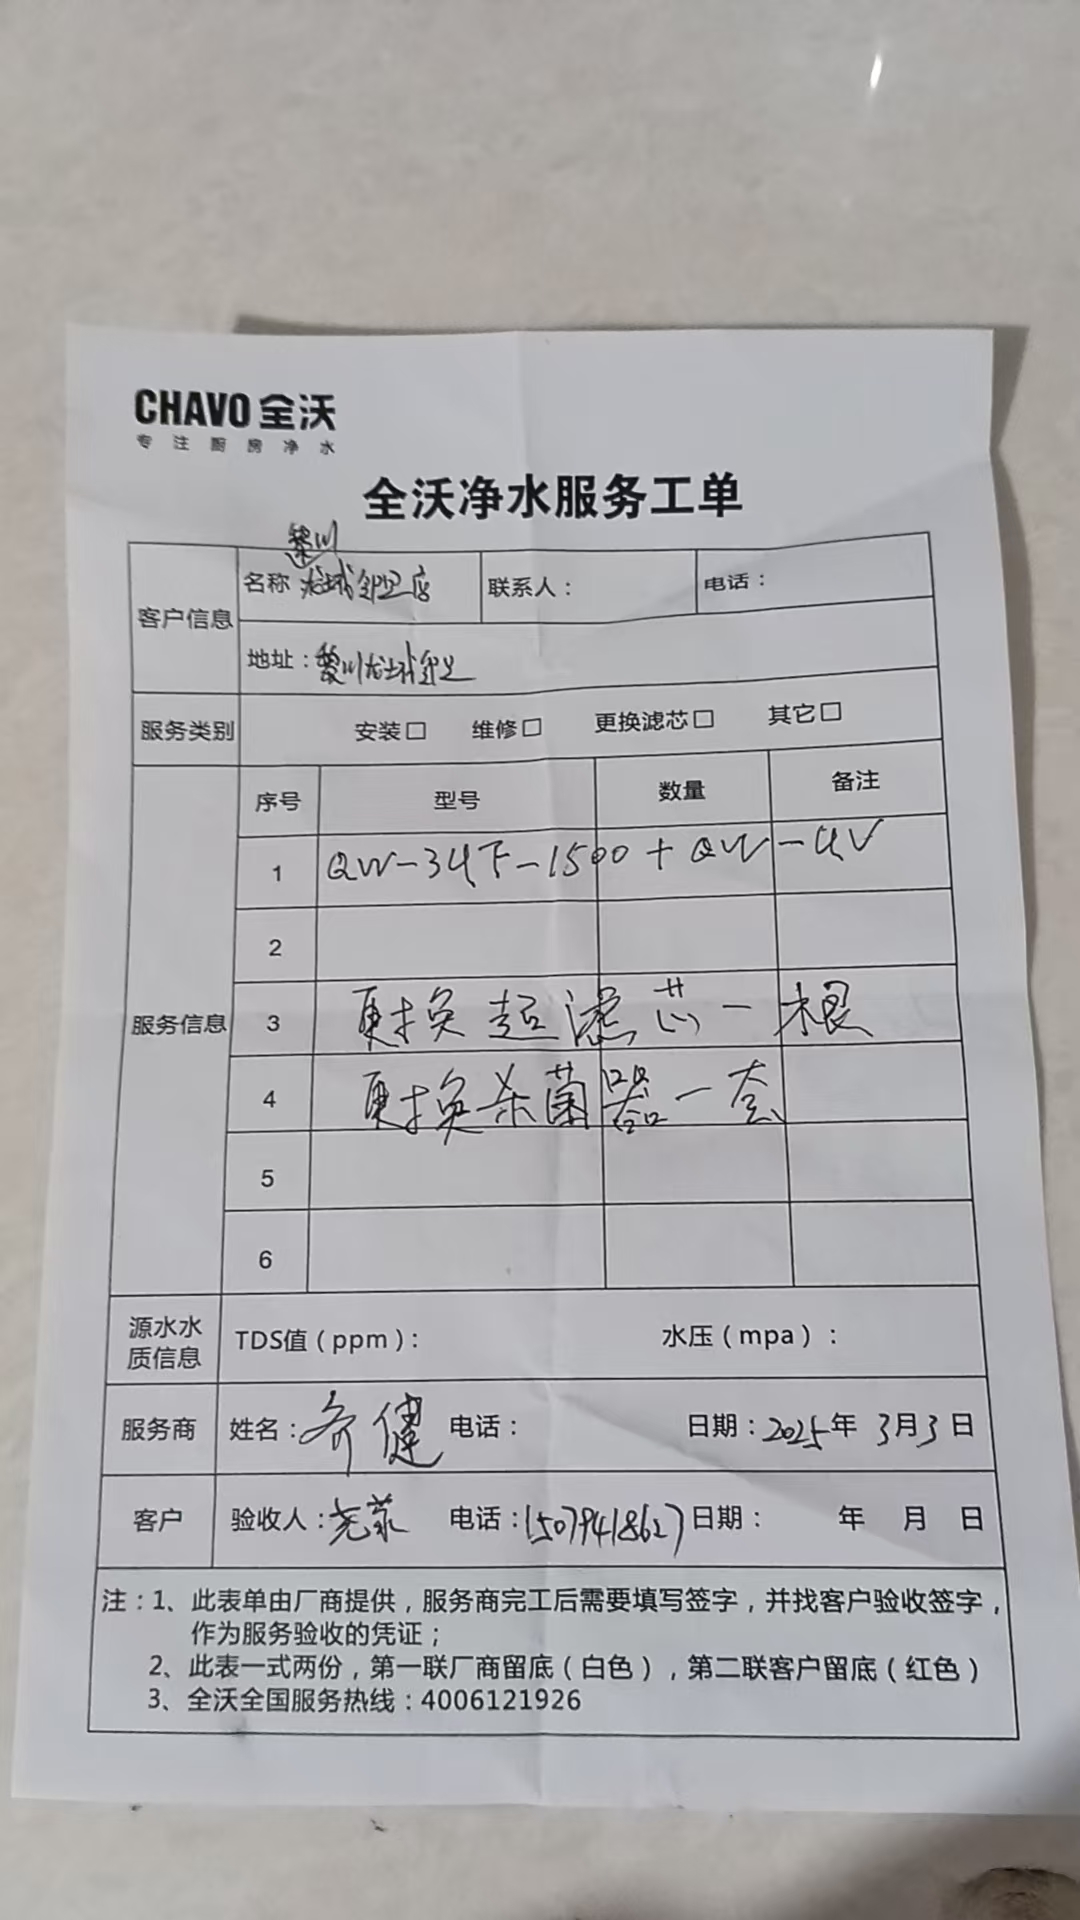 CHAVO 全沃
专注厨房净水
全沃净水服务工单
黎川
客户信息 名称 龙城 店 联系人： 电话：
地址：黎川龙城
服务类别 安装□ 维修□ 更换滤芯□ 其它□
服务信息 序号 型号 数量 备注
1 QW-34下-1500+QW-UV
2
3 更换超滤芯一根
4 更换杀菌器一套
5
6
源水水质信息 TDS值（ppm）： 水压（mpa）：
服务商 姓名：齐健 电话： 日期：2025年3月3日
客户 验收人： 电话：15079418627 日期： 年 月 日
注：1、此表单由厂商提供，服务商完工后需要填写签字，并找客户验收签字，
作为服务验收的凭证；
2、此表一式两份，第一联厂商留底（白色），第二联客户留底（红色）
3、全沃全国服务热线：4006121926